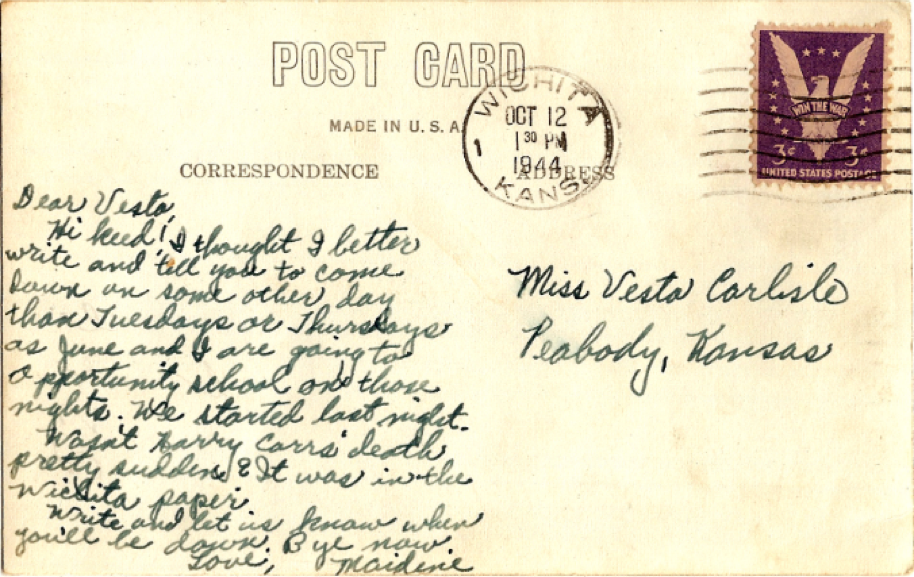 POST CARD
MADE IN U. S. A.
CORRESPONDENCE
ADDRESS
WICHITA
OCT 12
1 30 PM
1944
KANS.
1
WIN THE WAR
3¢ 3¢
UNITED STATES POSTAGE
Dear Vesta,
Hi keed! I thought I better
write and tell you to come
down on some other day
than Tuesdays or Thursdays
as June and I are going to
opportunity school on those
nights. We started last night.
Wasn't Harry Carrs' death
pretty sudden? It was in the
Wichita paper.
Write and let us know when
you'll be down. Bye now
Love, Maidene
Miss Vesta Carlisle
Peabody, Kansas